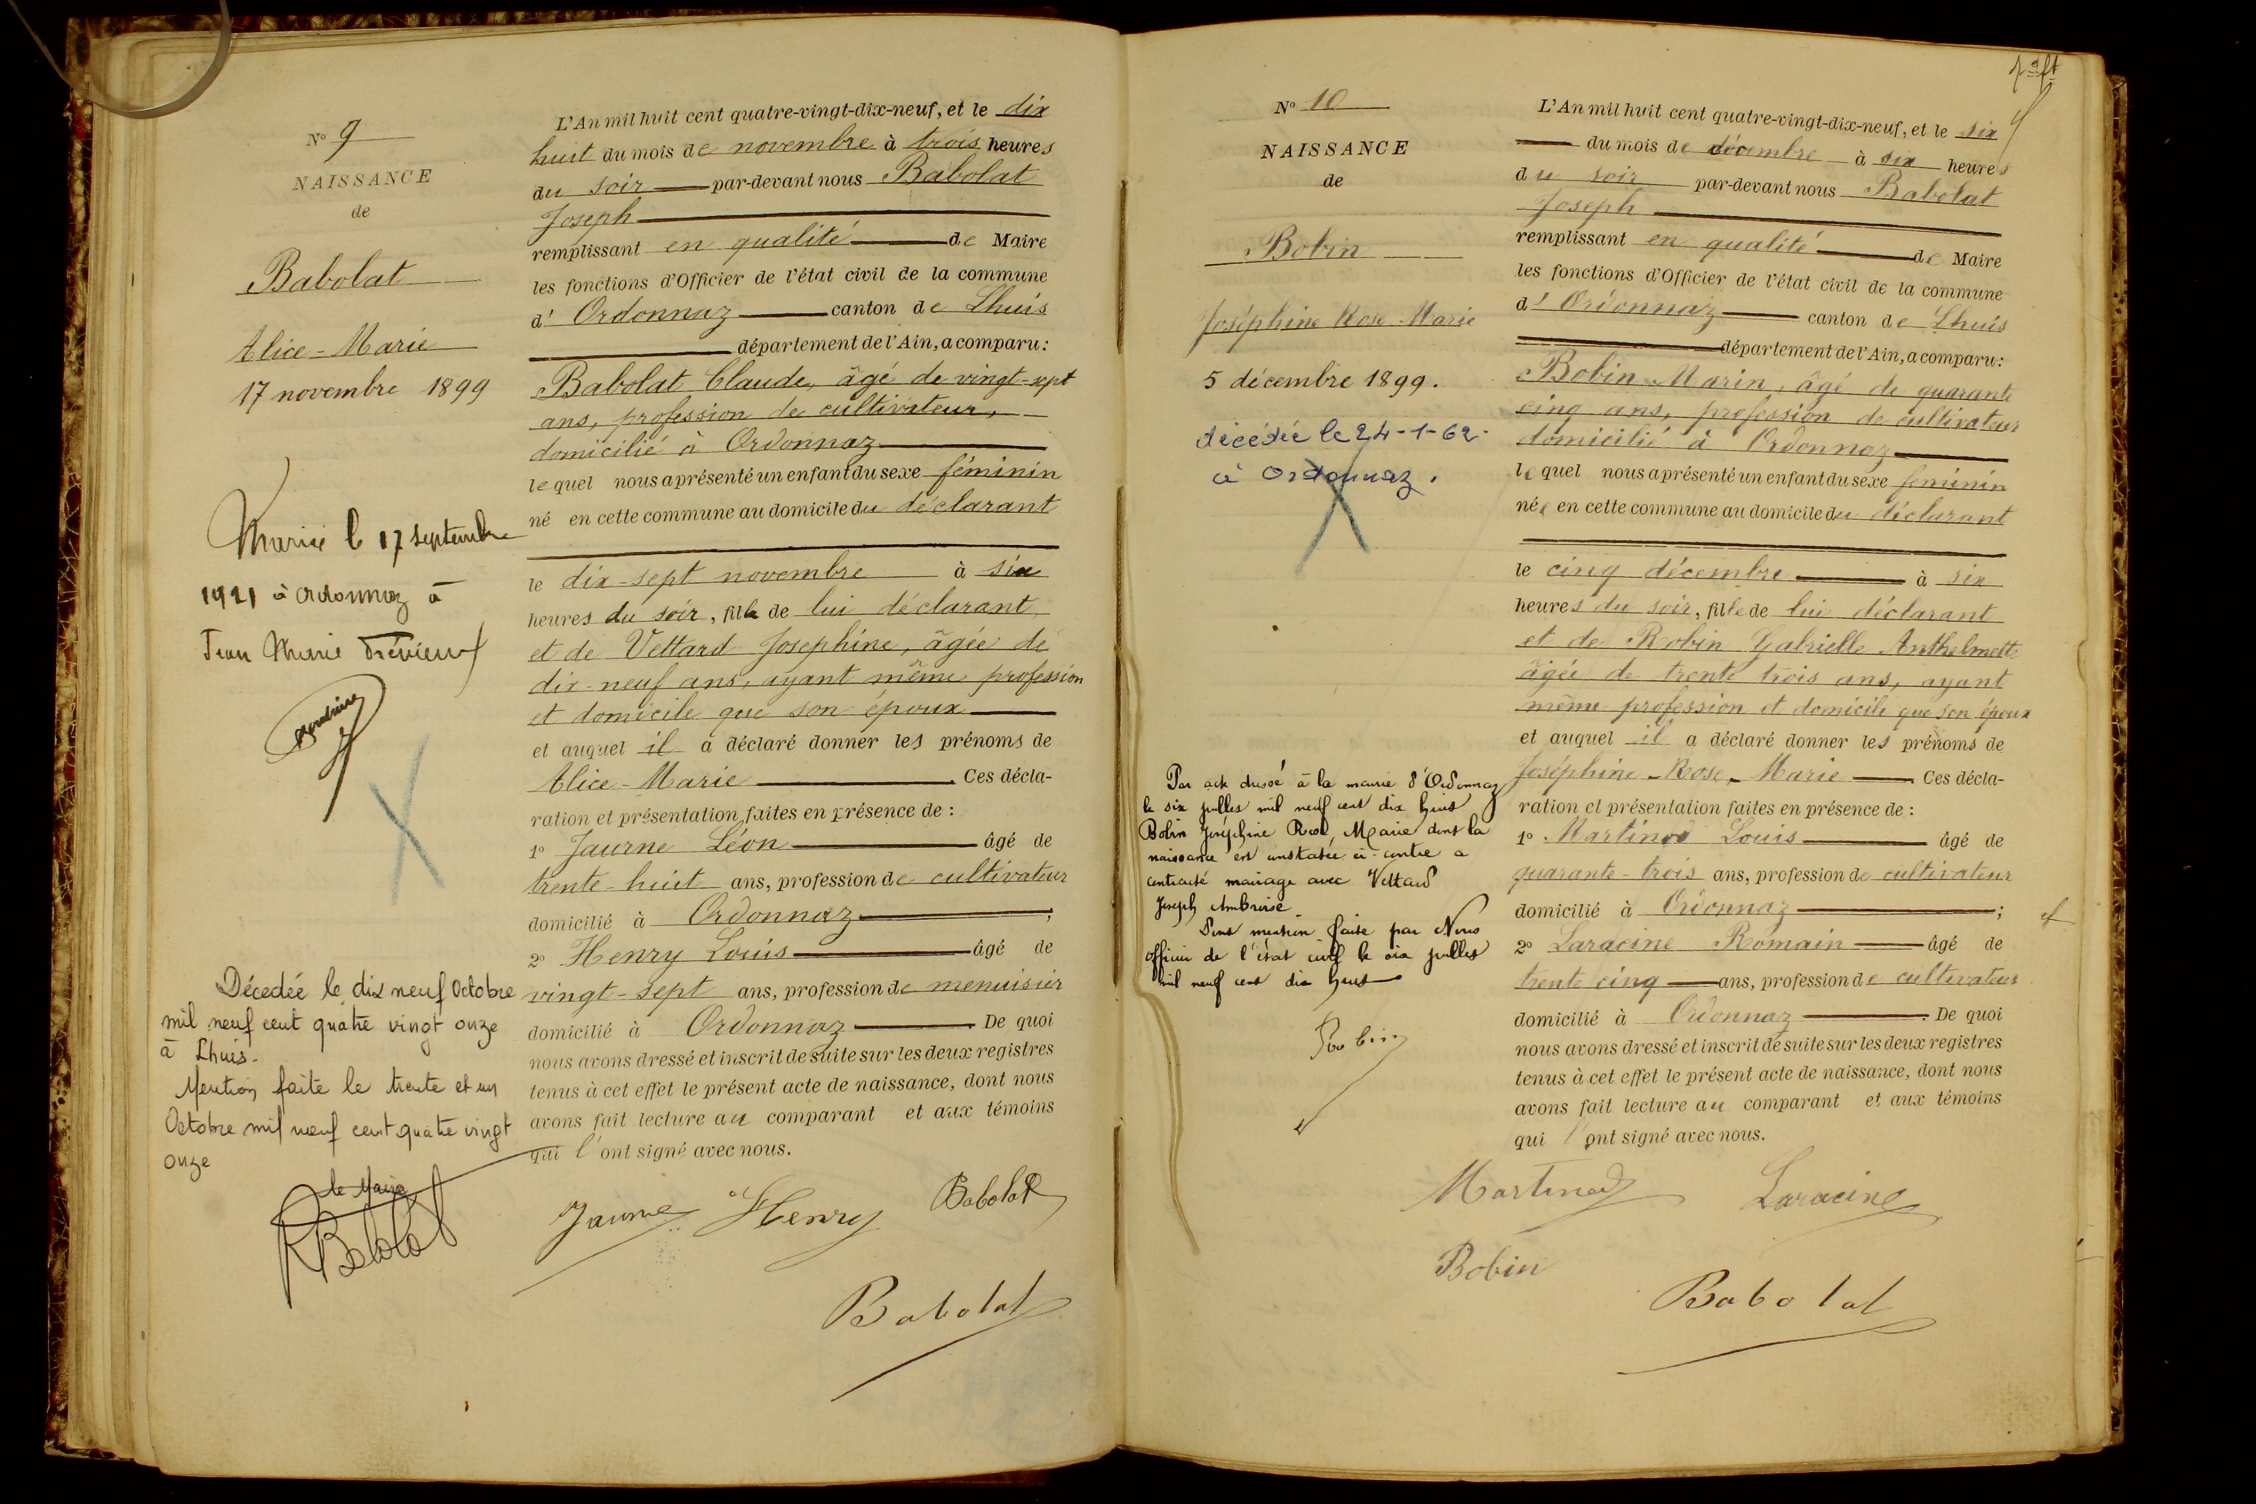 N° 9
NAISSANCE
de
Babolat
Alice-Marie
17 novembre 1899
Mariée le 17 septembre
1921 à Ordonnaz à
Jean Marie Trévieux
Décedée le dix neuf Octobre
mil neuf cent quatre vingt onze
à Lhuis.
Mention faite le trente et un
Octobre mil neuf cent quatre vingt
onze
le Maire
RBabolat
L'An mil huit cent quatre-vingt-dix-neuf, et le dix
huit du mois de novembre à trois heures
du soir par-devant nous Babolat
Joseph
remplissant en qualité de Maire
les fonctions d'Officier de l'état civil de la commune
d' Ordonnaz canton de Lhuis
département de l'Ain, a comparu:
Babolat Claude, âgé de vingt-sept
ans, profession de cultivateur,
domicilié à Ordonnaz
lequel nous a présenté un enfant du sexe féminin
né en cette commune au domicile du déclarant
le dix-sept novembre à six
heures du soir, fille de lui déclarant
et de Vettard Josephine, âgée de
dix-neuf ans, ayant même profession
et domicile que son époux
et auquel il a déclaré donner les prénoms de
Alice-Marie Ces décla-
ration et présentation faites en présence de :
1° Jaurne Léon âgé de
trente-huit ans, profession de cultivateur
domicilié à Ordonnaz ;
2° Henry Louis âgé de
vingt-sept ans, profession de menuisier
domicilié à Ordonnaz. De quoi
nous avons dressé et inscrit de suite sur les deux registres
tenus à cet effet le présent acte de naissance, dont nous
avons fait lecture au comparant et aux témoins
qui l'ont signé avec nous.
Jaurne Henry Babolat
Babolat
N° 10
NAISSANCE
de
Bobin
Joséphine Rose Marie
5 décembre 1899.
décédée le 24-1-62
à Ordonnaz.
Par acte dressé à la mairie d'Ordonnaz
le six juillet mil neuf cent dix huit
Bobin Joséphine Rose, Marie dont la
naissance est constatée ci-contre a
contracté mariage avec Vettard
Joseph Ambroise
Dont mention faite par Nous
officier de l'état civil le six juillet
mil neuf cent dix huit
L'An mil huit cent quatre-vingt-dix-neuf, et le six
du mois de décembre à six heures
du soir par-devant nous Babolat
Joseph
remplissant en qualité de Maire
les fonctions d'Officier de l'état civil de la commune
d' Ordonnaz canton de Lhuis
département de l'Ain, a comparu:
Bobin Marin, âgé de quarante
cinq ans, profession de cultivateur
domicilié à Ordonnaz
lequel nous a présenté un enfant du sexe féminin
née en cette commune au domicile du déclarant
le cinq décembre à six
heures du soir, fille de lui déclarant
et de Robin Gabrielle Anthelmette
âgée de trente trois ans, ayant
même profession et domicile que son époux
et auquel il a déclaré donner les prénoms de
Joséphine-Rose-Marie Ces décla-
ration et présentation faites en présence de :
1° Martinod Louis âgé de
quarante-trois ans, profession de cultivateur
domicilié à Ordonnaz ;
2° Laracine Romain âgé de
trente cinq ans, profession de cultivateur
domicilié à Ordonnaz. De quoi
nous avons dressé et inscrit de suite sur les deux registres
tenus à cet effet le présent acte de naissance, dont nous
avons fait lecture au comparant et aux témoins
qui l'ont signé avec nous.
Martinod Laracine
Bobin
Babolat